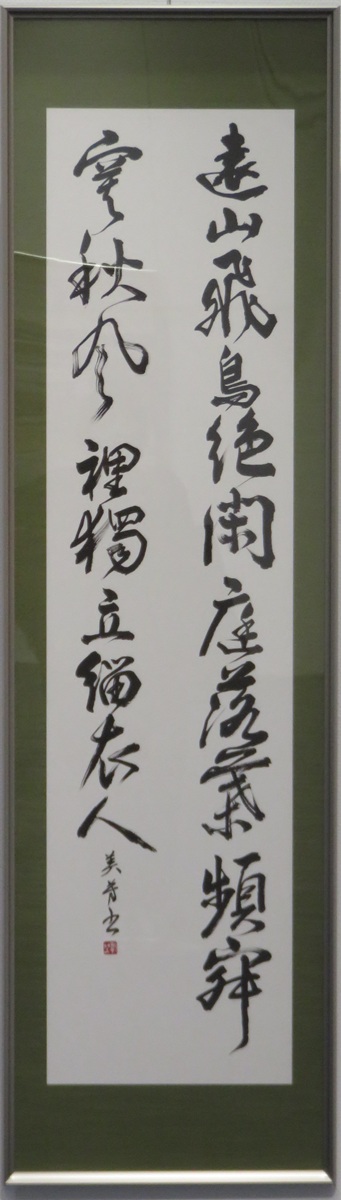 遠山飛鳥絶閑庭落葉頻寂
寞秋風裡獨立緇衣人
美